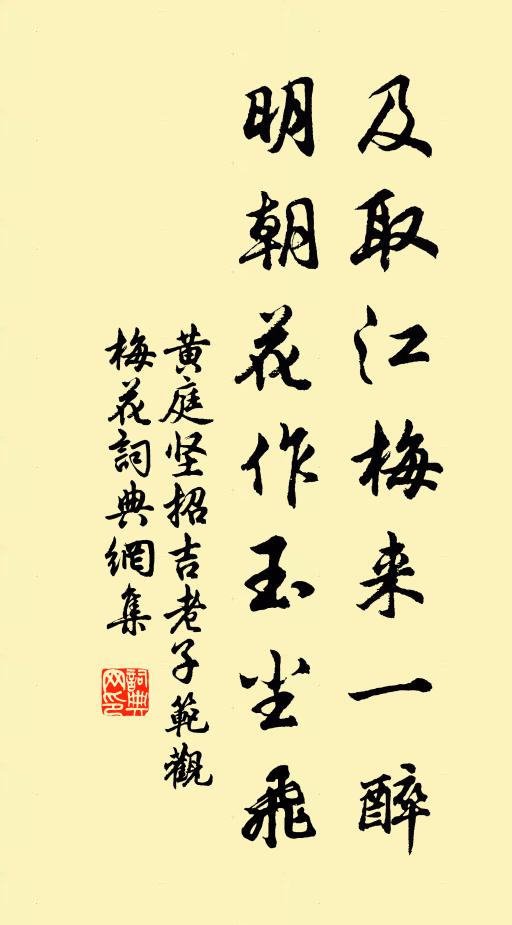 及取江梅来一醉
明朝花作玉尘飛
黄庭坚招吉老子範觀
梅花詞典網集
詞典网印